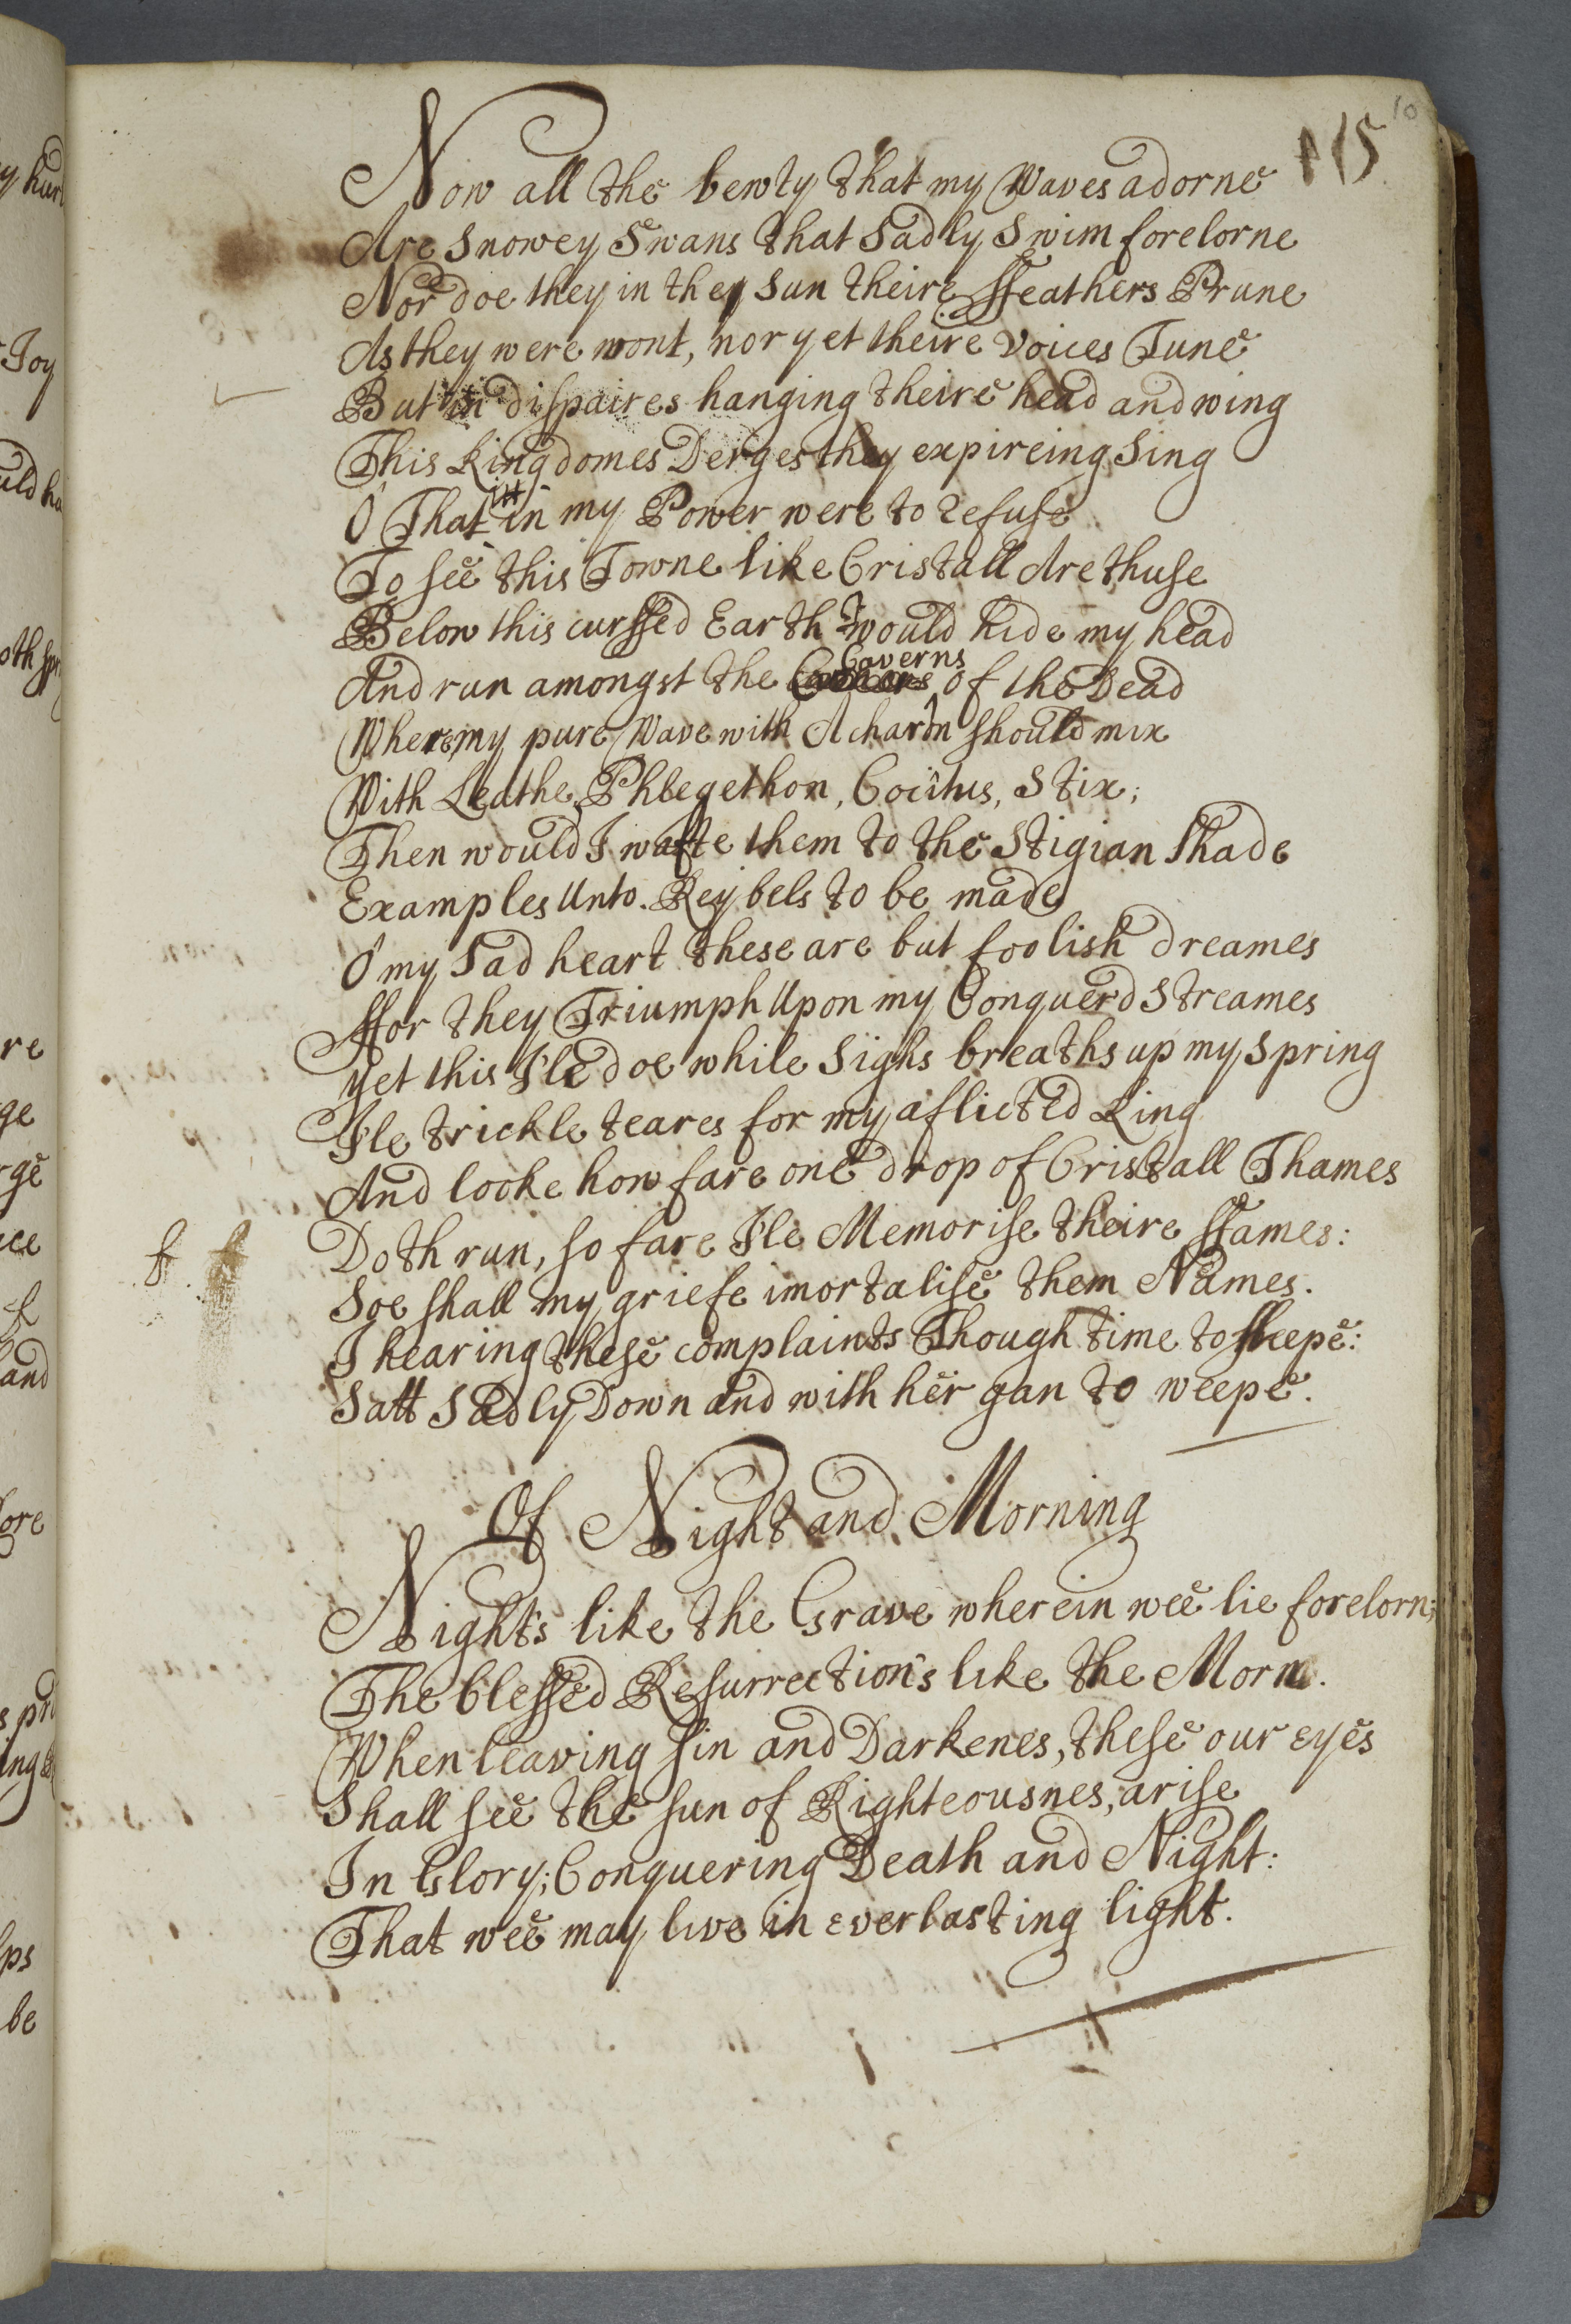 10
115
Now all the bewty that my Waves adorne
Are Snowey Swans that Sadly Swim forelorne
Nor doe they in they Sun theire ffeathers Prune
As they were wont, nor yet theire Voices Tune
But in dispaires hanging theire head and wing
This Kingdomes Derges they expireing Sing
O That itt in my Power were to refuse
To see this Towne like Cristall Arethuse
Below this curssed Earth I would hide my head
And run amongst the Caverns of the Dead
Where my pure Wave with Acharon should mix
With Leathe, Phlegethon, Cocitus, Stix;
Then would I wafte them to the Stigian Shade
Examples Unto Reybels to be made
O my Sad heart these are but foolish dreames
ffor they Triumph Upon my Conquerd Streames
Yet this I'le doe while Sighs breaths up my Spring
I'le trickle teares for my aflicted King
And looke how fare one drop of Cristall Thames
Doth run, so fare I'le Memorise theire ffames:
f f
Soe shall my griefe imortalise them Names.
I hearing these complaints Though time to sleepe:
Satt Sadly Down and with her gan to weepe.
Of Night and Morning
Night's like the Grave wherein wee lie forelorn;
The blessed Resurrection's like the Morn.
When leaving sin and Darkenes, these our eyes
Shall see the sun of Righteousnes, arise
In Glory; Conquering Death and Night:
That wee may live in everlasting light.